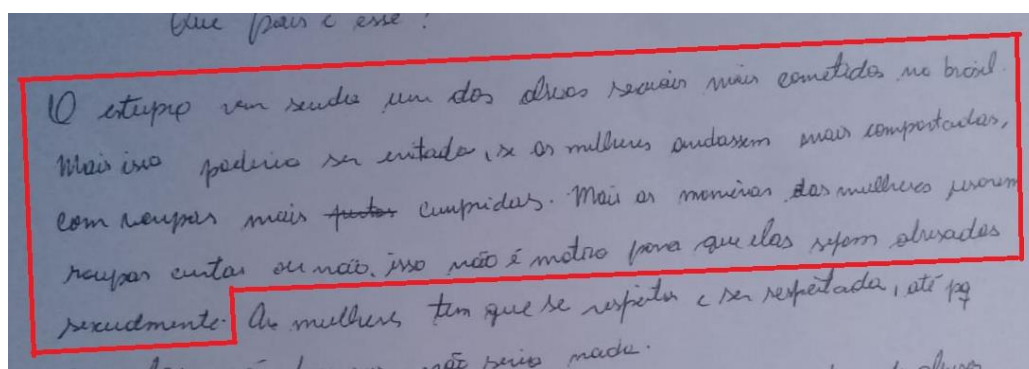 Que pais é esse?
O estupro vem sendo um dos abusos sexuais mais cometidos no brasil.
Mais isso poderia ser evitado, se as mulheres andassem mais comportadas,
com roupas mais cumpridas. Mais as maneiras das mulheres usarem
roupas curtas ou não, isso não é motivo para que elas sejam abusadas
sexualmente. As mulheres tem que se respeitar e ser respeitada, até pq
não seria nada.